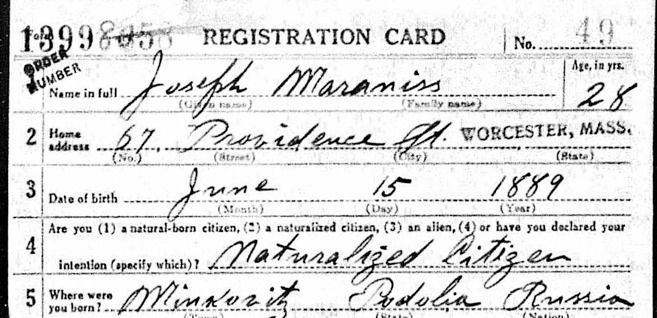 13998 REGISTRATION CARD No. 49
ORDER NUMBER
Joseph Maraniss Age, in yrs.
1 Name in full (Given name) (Family name) 28
2 Home address 67 Providence St. WORCESTER, MASS.
(No.) (Street) (City) (State)
3 Date of birth June 15 1889
(Month) (Day) (Year)
Are you (1) a natural-born citizen, (2) a naturalized citizen, (3) an alien, (4) or have you declared your
4 intention (specify which)? Naturalized Citizen
5 Where were you born? Minkovitz Podolia Russia
(Town) (State) (Nation)